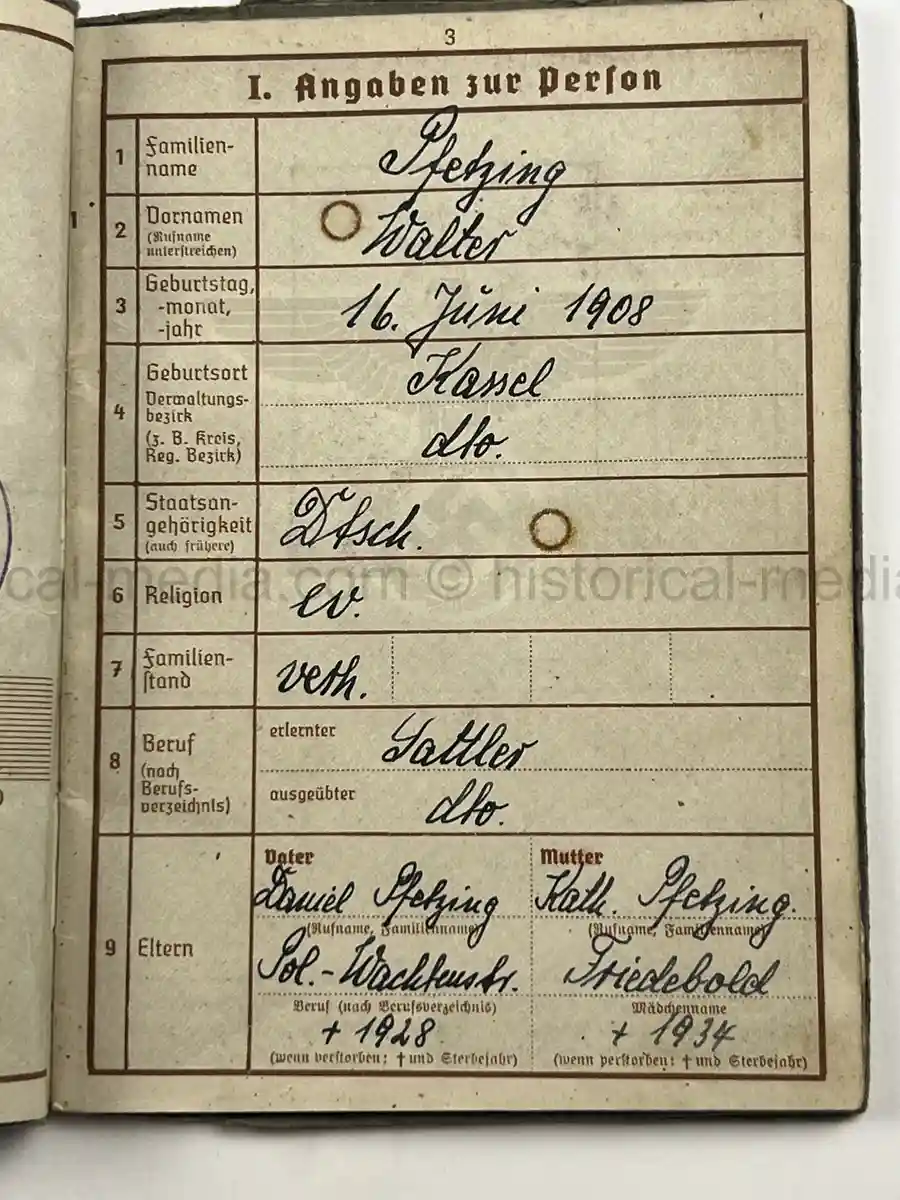 3
I. Angaben zur Person
1 Familien-
name
Pfetzing
2 Vornamen
(Rufname
unterstreichen)
Walter
3 Geburtstag,
-monat,
-jahr
16. Juni 1908
4 Geburtsort
Kassel
Verwaltungs-
bezirk
(z. B. Kreis,
Reg. Bezirk)
dto.
5 Staatsan-
gehörigkeit
(auch frühere)
Dtsch.
cal-media.com © historical-media
6 Religion
ev.
7 Familien-
stand
verh.
8 Beruf
(nach
Berufs-
verzeichnis)
erlernter
Sattler
ausgeübter
dto.
9 Eltern
Vater
Daniel Pfetzing
(Rufname, Familienname)
Pol.-Wachtmstr.
Beruf (nach Berufsverzeichnis)
+ 1928
(wenn verstorben: † und Sterbejahr)
Mutter
Kath. Pfetzing.
(Rufname, Familienname)
Friedebold
Mädchenname
+ 1934
(wenn verstorben: † und Sterbejahr)